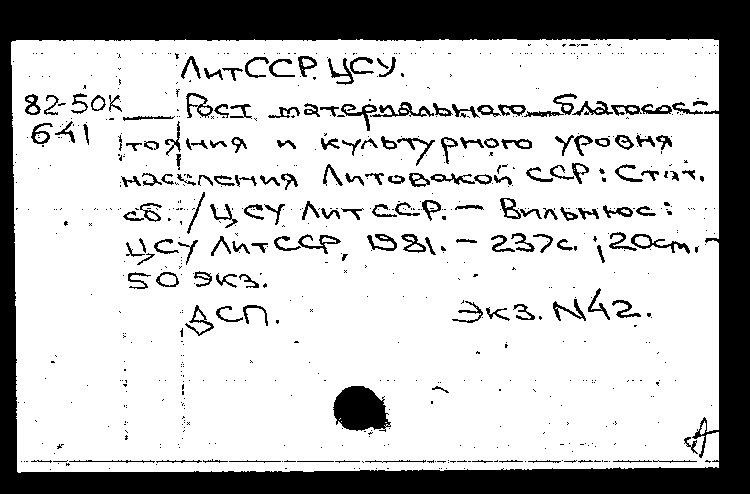 ЛитССР. ЦСУ.
82-50К Рост материального благосос-
641 тояния и культурного уровня
населения Литовской ССР: Стат.
сб. / ЦСУ ЛитССР. – Вильнюс:
ЦСУ ЛитССР, 1981. – 237с. ; 20см. –
50 экз.
ДСП. Экз. N42.